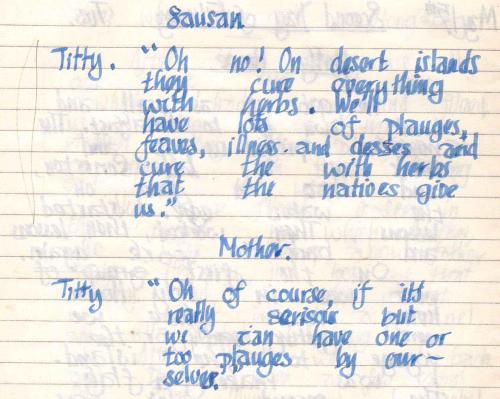 Sausan.
Titty. "Oh no! On desert islands
they cure everything
with herbs. We'll
have lots of plauges,
feaves, illness. and desses and
cure the with herbs
that the natives give
us."
Mother.
Titty "Oh of course, if its
really serisous but
we can have one or
too plauges by our-
selves."